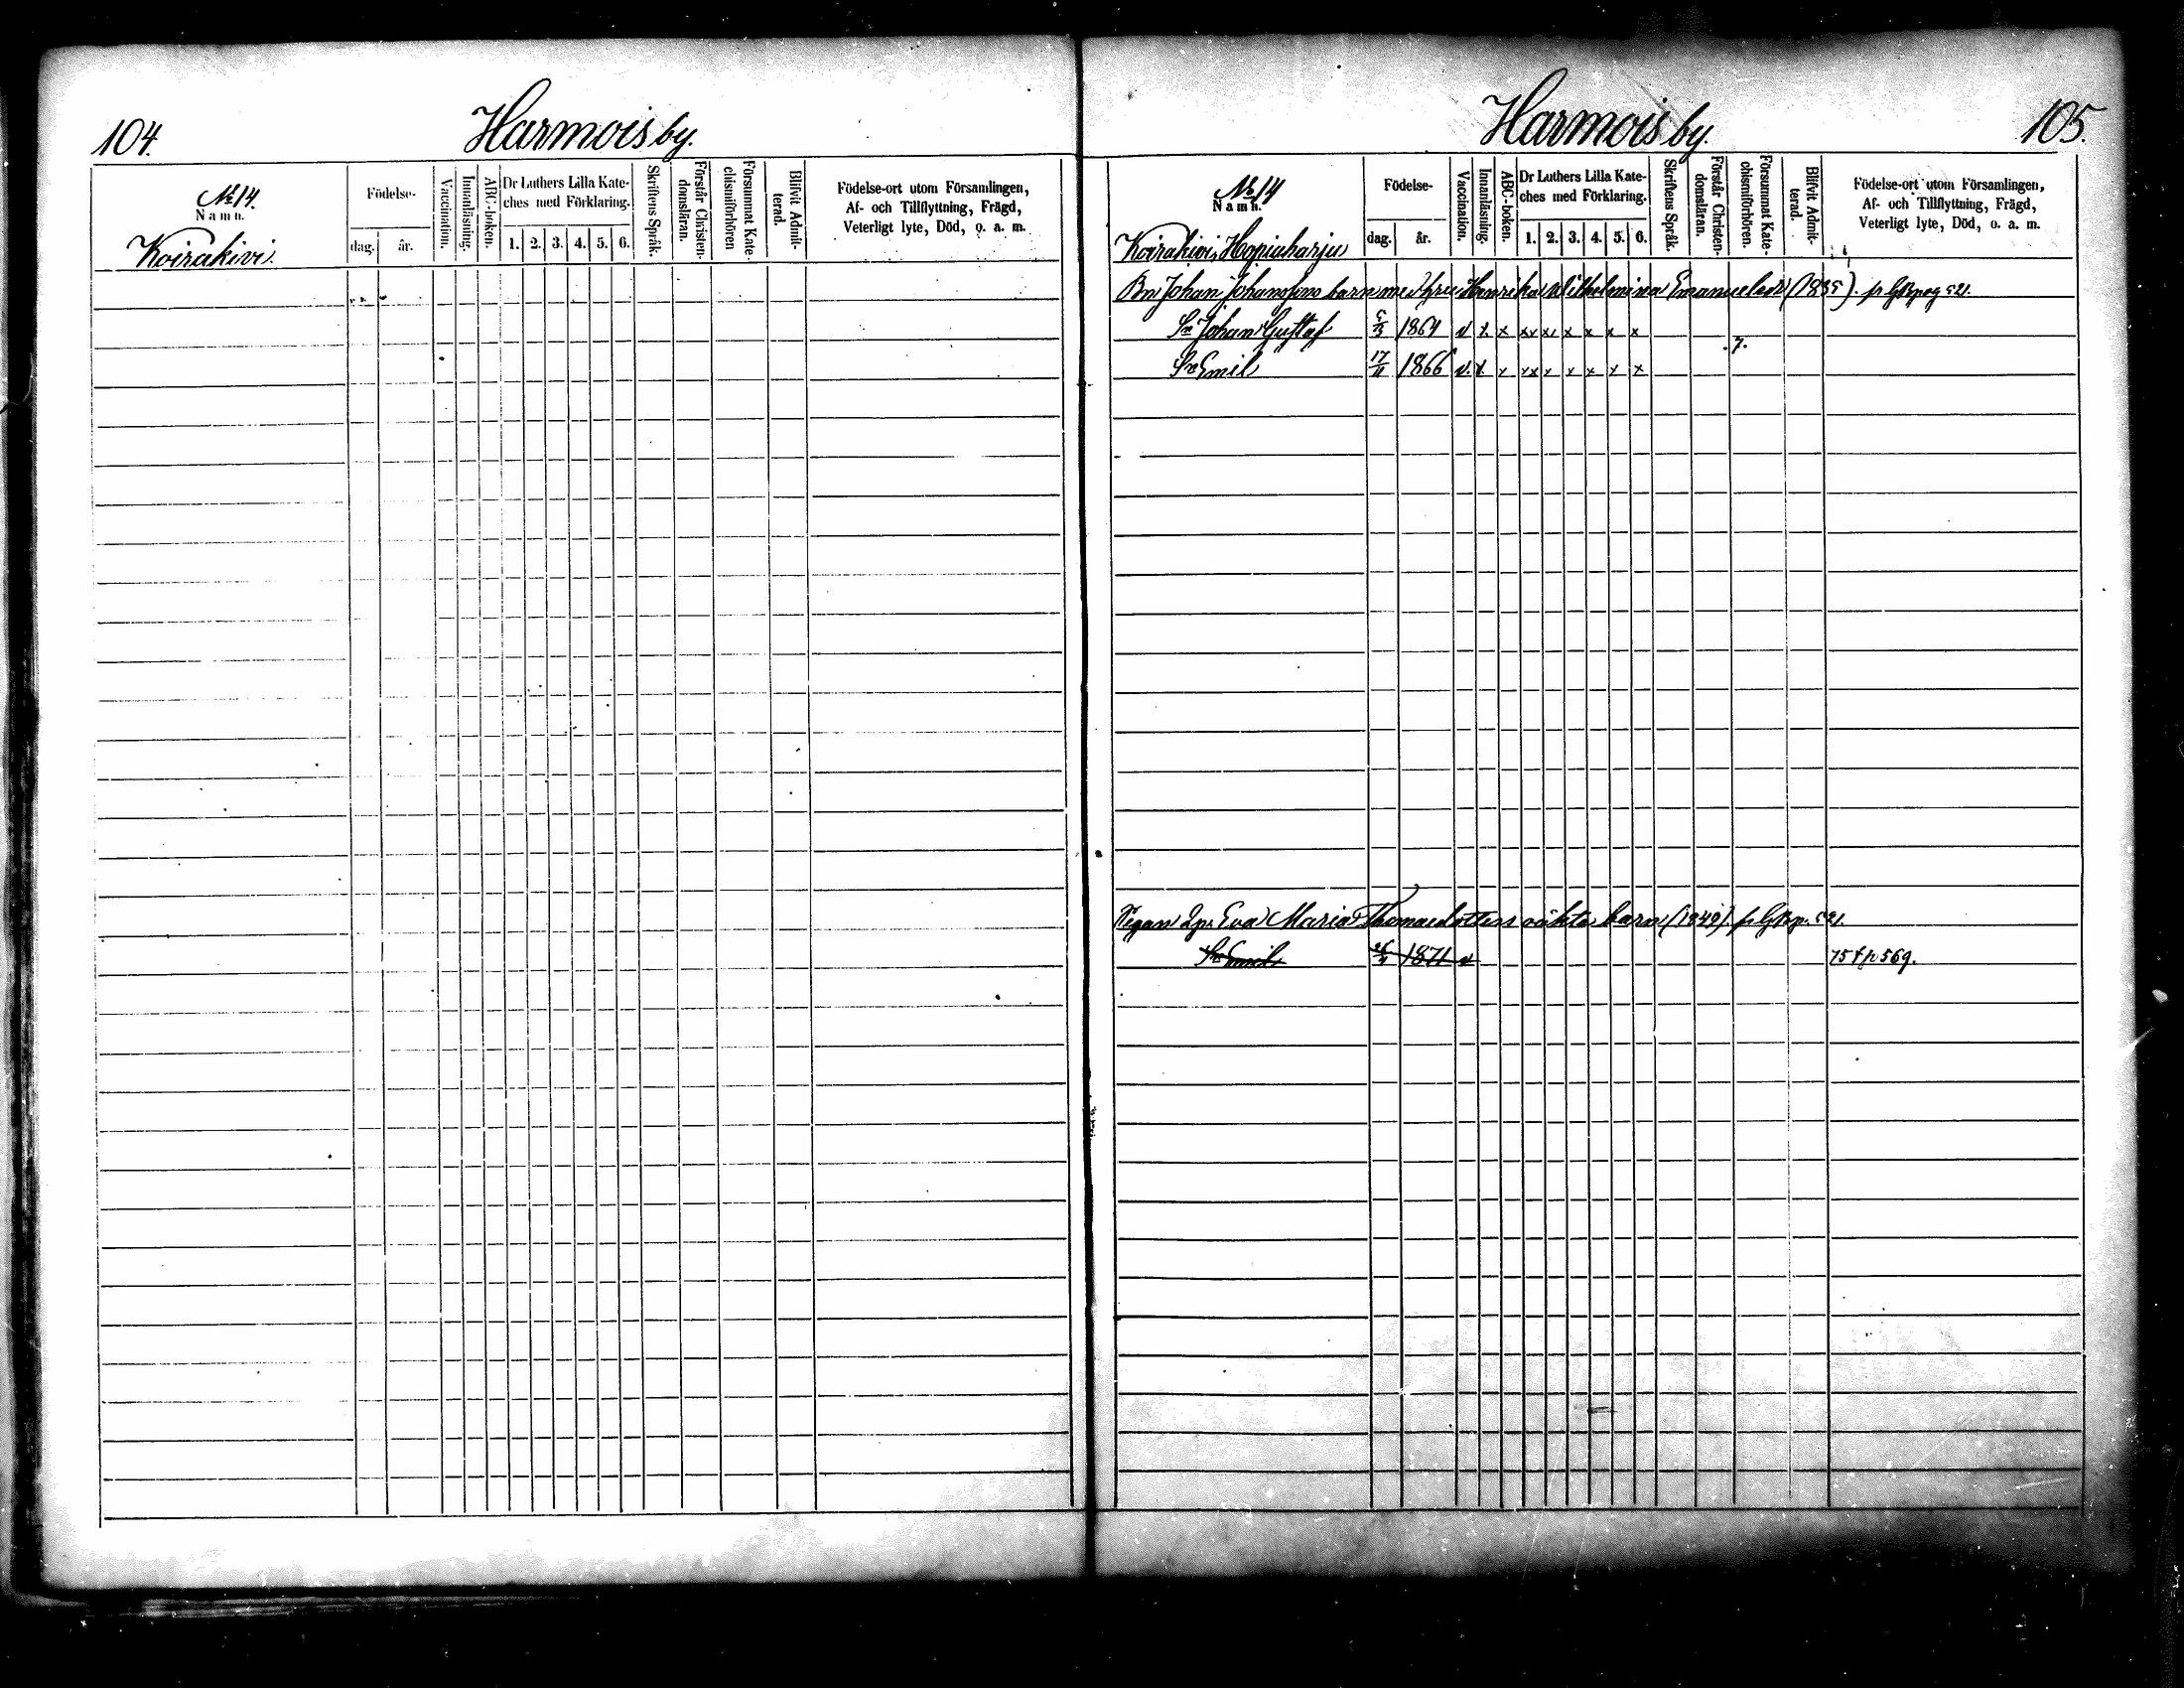 104.
Harmois by.
№ 14.
Namn.
Koirakivi.
Födelse-
dag.
år.
Vaccination.
Innanläsning.
ABC-boken.
Dr Luthers Lilla Kate-
ches med Förklaring.
1. 2. 3. 4. 5. 6.
Skriftens Språk.
Förstår Christen-
domsläran.
Försummat Kate-
chismiförhören
Blifvit Admit-
terad.
Födelse-ort utom Församlingen,
Af- och Tillflyttning, Frägd,
Veterligt lyte, Död, o. a. m.
Harmois by.
105.
№ 14
Namn.
Koirakivi, Hopiaharju
Födelse-
dag.
år.
Vaccination.
Innanläsning.
ABC-boken.
Dr Luthers Lilla Kate-
ches med Förklaring.
1. 2. 3. 4. 5. 6.
Skriftens Språk.
Förstår Christen-
domsläran.
Försummat Kate-
chismiförhören.
Blifvit Admit-
terad.
Födelse-ort utom Församlingen,
Af- och Tillflyttning, Frägd,
Veterligt lyte, Död, o. a. m.
Bn Johan Johanssons barn med Henrika Wilhelmina Emanuelsdr (1835). p 521.
Sn Johan Gustaf 1864 v x x xx x x x x x
7.
Sn Emil 17/11 1866 v x x xx x x x x x
Eva Maria Thomasdotters oäkta barn (1849). 521.
Sn Emil 1871 v 75 f p 569.